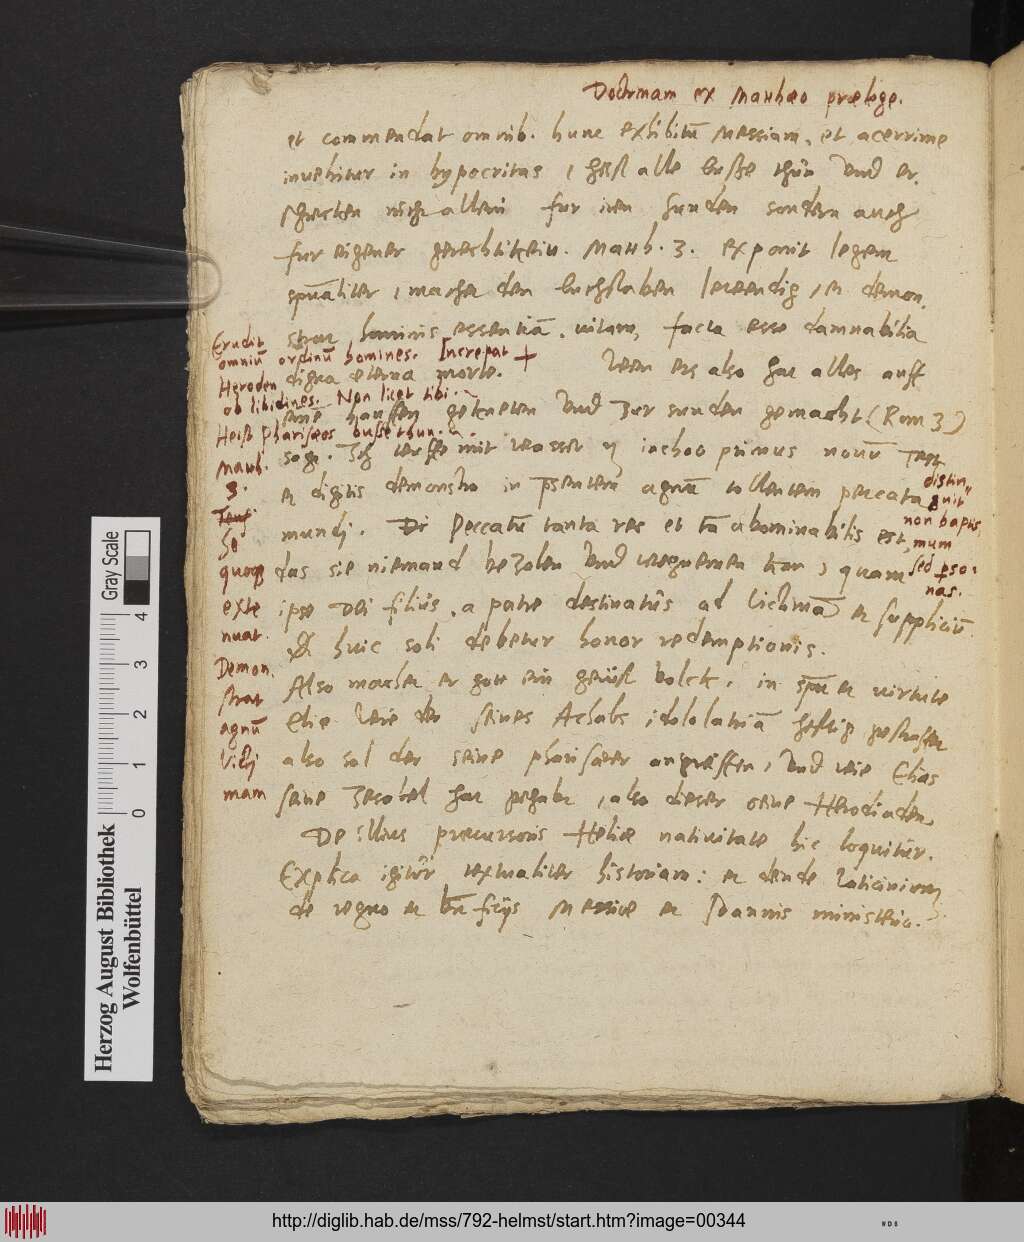 Doctrinam ex Matthæo prælege.
et commendat omnib. hunc exhibitū Messiam, et acerrime
invehitur in hypocritas, heist alle busse thun vnd er,
schrecken nicht allein fur iren sunden sondern auch
fur eigener gerechtikeit. Matth. 3. exponit legem
spūaliter, machet den buchstaben lebendig, et demon,
strat hominis essentiā, vitam, facta esse damnabilia
digna eterna morte. + Wen ers also hat alles auff
eine hauffen geknetten vnd zur sunden gemacht (Rom 3)
sagt. Ich teuffe mit wasser et inchoo primus nouū Test
et digitis demonstro in psentem agnū tollentem peccata
mundj. Di peccatū tanta res et tā abominabilis est,
das sie niemand bezalen vnd wegnemen kan, quam
ipse Dei filius, a patre destinatus ad victimā et suppliciū
Et huic soli debetur honor redemptionis.
Also machet er gott ein gerust volck, in spū et virtute
Elie. Wie der seines Achabs idololatriā hefftig gestraffet
also sol der seine phariseer angreiffen, vnd wie Elias
seine Jesabel hat gehabt, also dieser seine Herodiaden,
De illius præcursoris Heliæ natiuitate hic loquitur.
Explica igitur textualiter historiam: et deinde vaticinium
de regno et bnficijs Messiæ et Joannis ministerio.
Erudit
omniū ordinū homines. Increpat +
Heroden
ob libidines. Non licet tibi.
Heist Phariseos busse thun.
Matth.
3.
Se
quoq
exte
nuat.
Demon,
strat
agnū
victi
mam
distin,,
guit
non baptis,
mum
sed pso,
nas.
Herzog August Bibliothek
Wolfenbüttel
Gray Scale
0 1 2 3 4
http://diglib.hab.de/mss/792-helmst/start.htm?image=00344